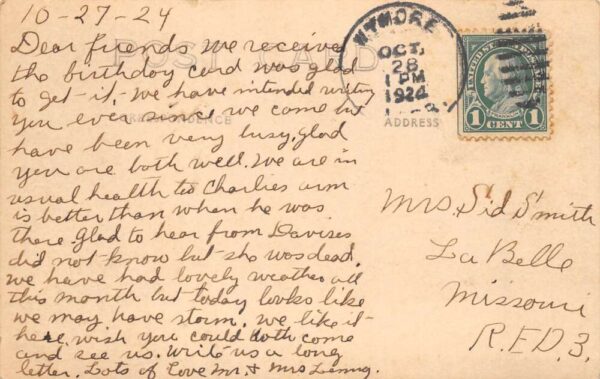 10-27-24
Dear friends we received
the birthday card was glad
to get it, we have intended writing
you ever since we came but
have been very busy, glad
you are both well. We are in
usual health tho Charlies arm
is better than when he was
there Glad to hear from Davises
did not know but she was dead.
we have had lovely weather all
this month but today looks like
we may have storm. we like it
here, wish you could both come
and see us. Write us a long
letter. Lots of Love Mr. & Mrs
POST CARD
CORRESPONDENCE
ADDRESS
OCT.
28
1 PM
1924
UNITED STATES POSTAGE
FRANKLIN
1 CENT 1
Mrs. Sid Smith
La Belle
Missouri
R.F.D 3.